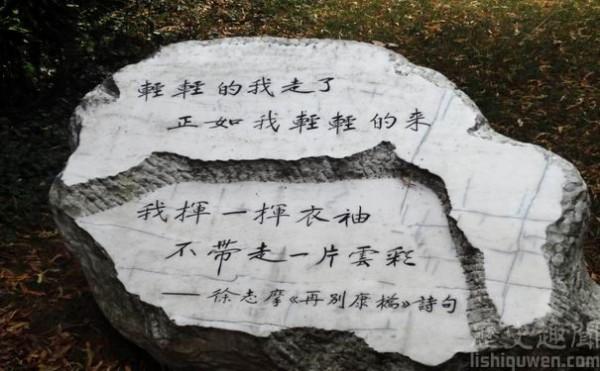 輕輕的我走了
正如我輕輕的来
我揮一揮衣袖
不带走一片雲彩
——徐志摩《再别康橋》詩句
歷史趣聞
lishiquwen.com